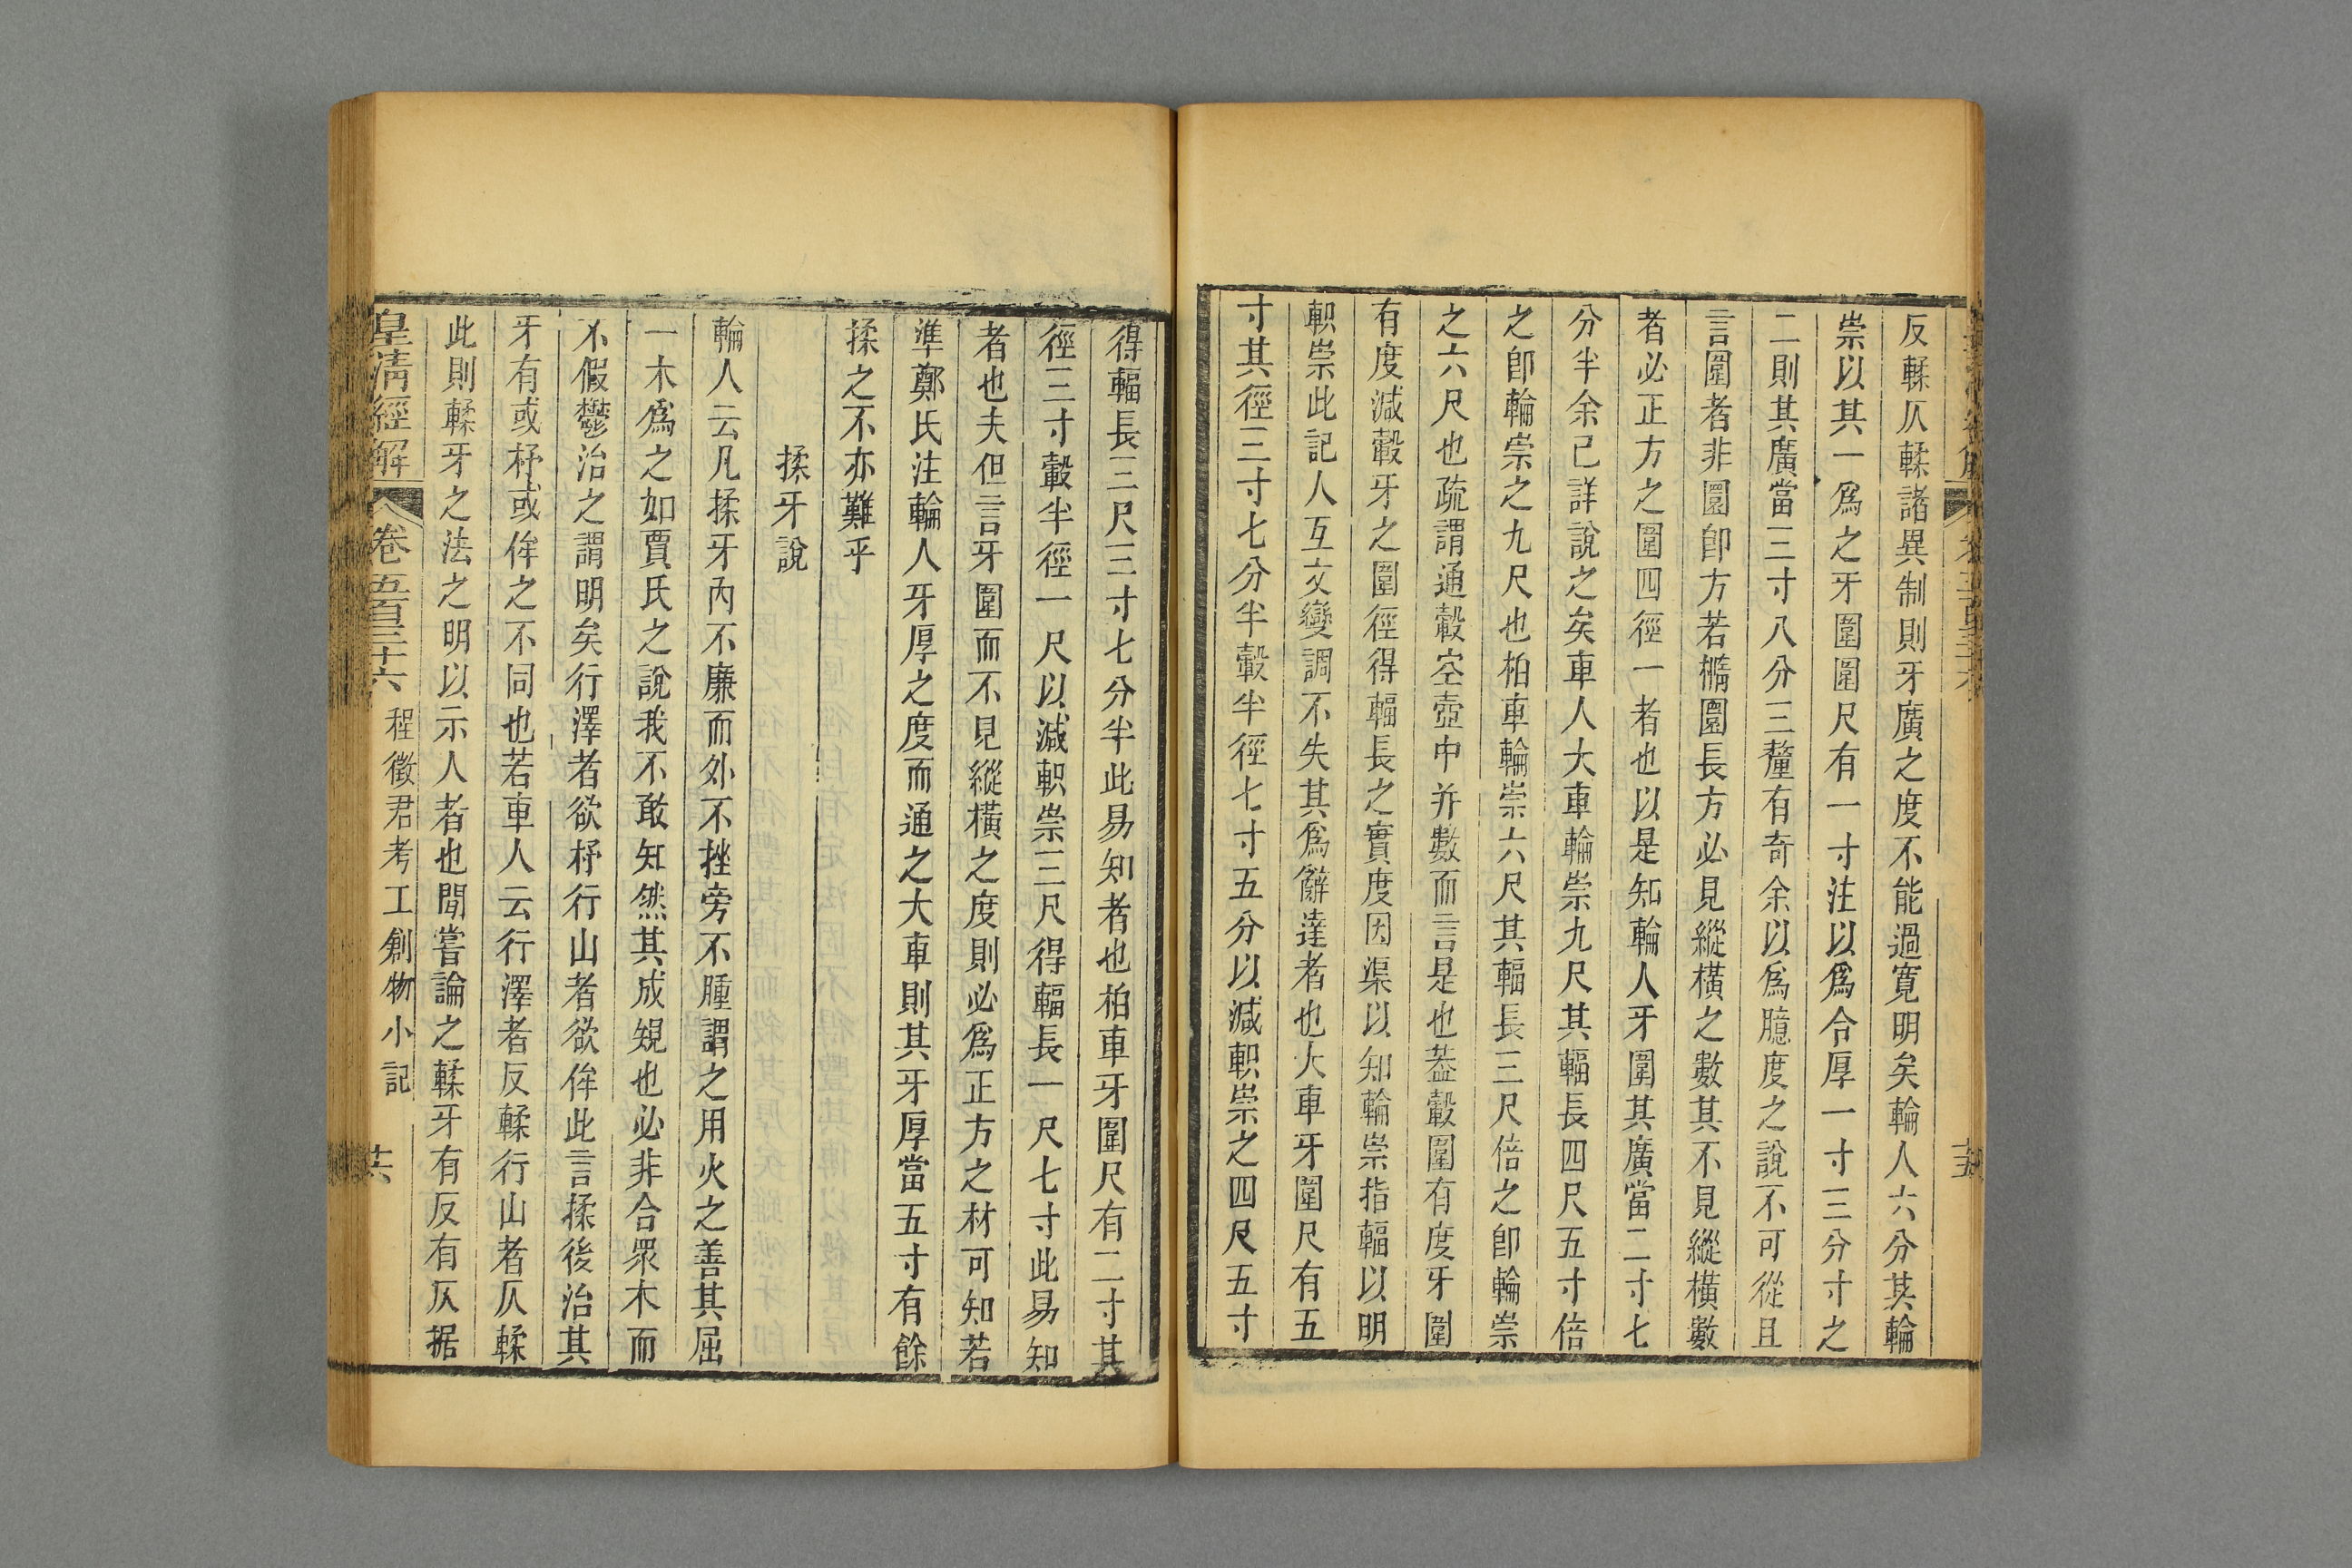 反輮仄輮諸異制則牙廣之度不能過寬明矣輪人六分其輪
崇以其一爲之牙圍圍尺有一寸注以爲令厚一寸三分寸之
二則其廣當三寸八分三釐有奇余以爲臆度之說不可從且
言圍者非圜卽方若橢圜長方必見縱橫之數其不見縱橫數
者必正方之圍四徑一者也以是知輪人牙圍其廣當二寸七
分半余已詳說之矣車人大車輪崇九尺其輻長四尺五寸倍
之卽輪崇之九尺也柏車輪崇六尺其輻長三尺倍之卽輪崇
之六尺也疏謂通轂空壺中并數而言是也葢轂圍有度牙圍
有度減轂牙之圍徑得輻長之實度因渠以知輪崇指輻以明
軹崇此記人互文變調不失其爲辭達者也大車牙圍尺有五
寸其徑三寸七分半轂半徑七寸五分以減軹崇之四尺五寸
得輻長三尺三寸七分半此易知者也柏車牙圍尺有二寸其
徑三寸轂半徑一尺以減軹崇三尺得輻長一尺七寸此易知
者也夫但言牙圍而不見縱橫之度則必爲正方之材可知若
準鄭氏注輪人牙厚之度而通之大車則其牙厚當五寸有餘
揉之不亦難乎
揉牙說
輪人云凡揉牙內不廉而外不挫旁不腫謂之用火之善其屈
一木爲之如賈氏之說我不敢知然其成規也必非合眾木而
不假鬱治之謂明矣行澤者欲杼行山者欲侔此言揉後治其
牙有或杼或侔之不同也若車人云行澤者反輮行山者仄輮
此則輮牙之法之明以示人者也聞嘗論之輮牙有反有仄据
皇淸經解 卷五百三十六 程徵君考工創物小記 共